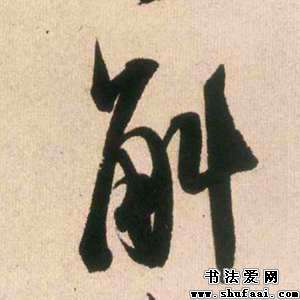 斛
书法爱网
www.shufaai.com